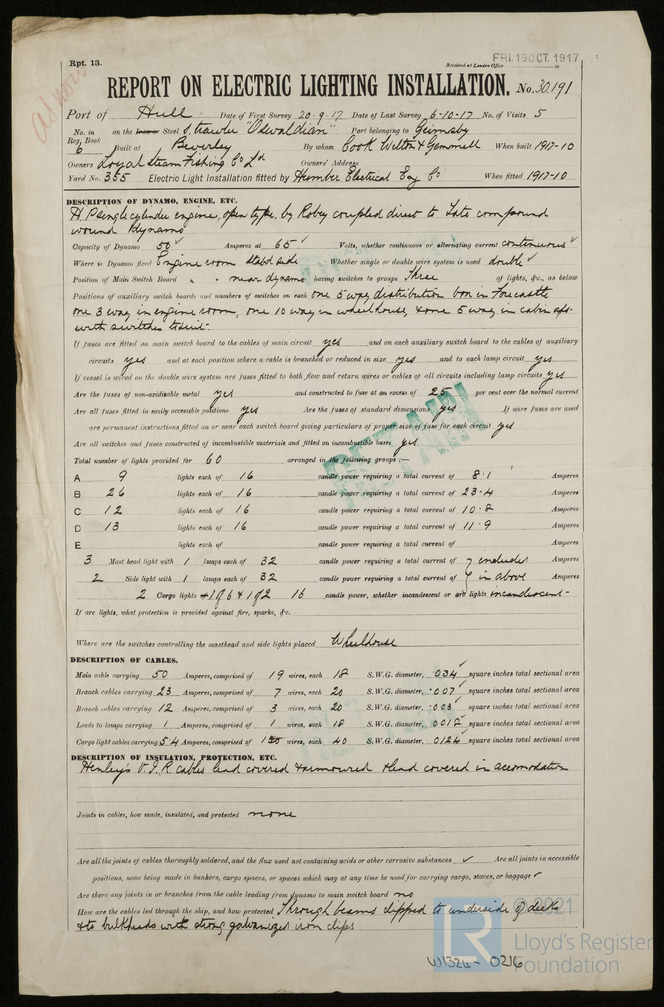 Rpt. 13.
FRI. 19 OCT. 1917
Received at London Office
REPORT ON ELECTRIC LIGHTING INSTALLATION. No. 30,191
Port of Hull Date of First Survey 20-9-17 Date of Last Survey 6-10-17 No. of Visits 5
No. in Reg. Book 6 on the Iron or Steel S. trawler "Oswaldian" Port belonging to Grimsby
Built at Beverley By whom Cook Welton & Gemmell When built 1917-10
Owners Loyal Steam Fishing Co Ld Owners' Address
Yard No. 355 Electric Light Installation fitted by Humber Electrical Eng Co When fitted 1917-10
DESCRIPTION OF DYNAMO, ENGINE, ETC.
H.P. single cylinder engine, open type, by Robey coupled direct to Tate compound
wound dynamo
Capacity of Dynamo 50 Amperes at 65 Volts, whether continuous or alternating current continuous
Where is Dynamo fixed Engine room starbd side Whether single or double wire system is used double
Position of Main Switch Board " " near dynamo having switches to groups Three of lights, &c., as below
Positions of auxiliary switch boards and numbers of switches on each one 5 way distribution box in Forecastle
one 3 way in engine room, one 10 way in wheelhouse, & one 5 way in cabin aft
with switches to suit.
If fuses are fitted on main switch board to the cables of main circuit yes and on each auxiliary switch board to the cables of auxiliary
circuits yes and at each position where a cable is branched or reduced in size yes and to each lamp circuit yes
If vessel is wired on the double wire system are fuses fitted to both flow and return wires or cables of all circuits including lamp circuits yes
Are the fuses of non-oxidizable metal yes and constructed to fuse at an excess of 25 per cent over the normal current
Are all fuses fitted in easily accessible positions yes Are the fuses of standard dimensions yes If wire fuses are used
are permanent instructions fitted on or near each switch board giving particulars of proper size of fuse for each circuit yes
Are all switches and fuses constructed of incombustible materials and fitted on incombustible bases yes
Total number of lights provided for 60 arranged in the following groups :—
A 9 lights each of 16 candle power requiring a total current of 8.1 Amperes
B 26 lights each of 16 candle power requiring a total current of 23.4 Amperes
C 12 lights each of 16 candle power requiring a total current of 10.8 Amperes
D 13 lights each of 16 candle power requiring a total current of 11.9 Amperes
E lights each of candle power requiring a total current of Amperes
3 Mast head light with 1 lamps each of 32 candle power requiring a total current of included Amperes
2 Side light with 1 lamps each of 32 candle power requiring a total current of in above Amperes
2 Cargo lights 1 of 6 & 1 of 2 16 candle power, whether incandescent or arc lights incandescent
If arc lights, what protection is provided against fire, sparks, &c.
Where are the switches controlling the masthead and side lights placed Wheelhouse
DESCRIPTION OF CABLES.
Main cable carrying 50 Amperes, comprised of 19 wires, each 18 S.W.G. diameter, .034 square inches total sectional area
Branch cables carrying 23 Amperes, comprised of 7 wires, each 20 S.W.G. diameter, .007 square inches total sectional area
Branch cables carrying 12 Amperes, comprised of 3 wires, each 20 S.W.G. diameter, .003 square inches total sectional area
Leads to lamps carrying 1 Amperes, comprised of 1 wires, each 18 S.W.G. diameter, .0018 square inches total sectional area
Cargo light cables carrying 5.4 Amperes, comprised of wires, each 40 S.W.G. diameter, .0124 square inches total sectional area
DESCRIPTION OF INSULATION, PROTECTION, ETC.
Henley's V.I.R. cables lead covered & armoured & lead covered in accomodation
Joints in cables, how made, insulated, and protected none
Are all the joints of cables thoroughly soldered, and the flux used not containing acids or other corrosive substances ✓ Are all joints in accessible
positions, none being made in bunkers, cargo spaces, or spaces which may at any time be used for carrying cargo, stores, or baggage ✓
Are there any joints in or branches from the cable leading from dynamo to main switch board no
How are the cables led through the ship, and how protected Through beams clipped to underside of deck
& to bulkheads with strong galvanized iron clips
© 2021
LR
Lloyd's Register
Foundation
W1324-0216